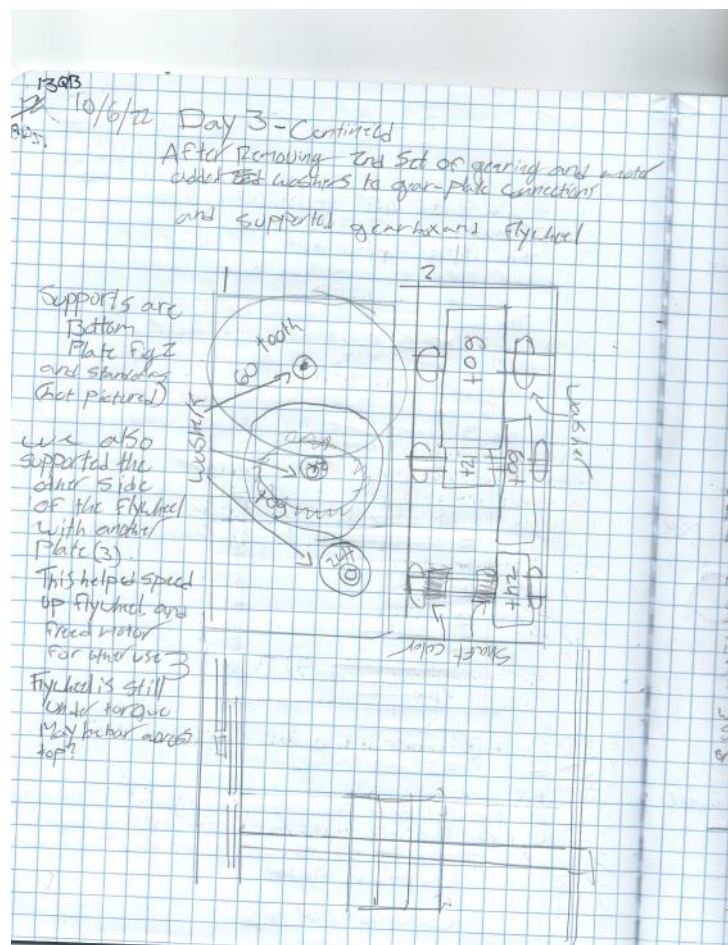 13QB
10/6/22 Day 3 - Continued
After Removing 2nd Set of gearing and motor
added washers to gear-plate connections
and supported gearbox and flywheel
Supports are
Bottom
Plate Fig 2
and standoffs
(not pictured)
we also
supported the
other side
of the flywheel
with another
Plate (3).
This helped speed
up flywheel and
freed motor
for other use
Flywheel is still
under torque
Maybe bar across
top?
1
60 tooth
washers
60t
24t
2
60t
washer
12t
60t
24t
Shaft color
3